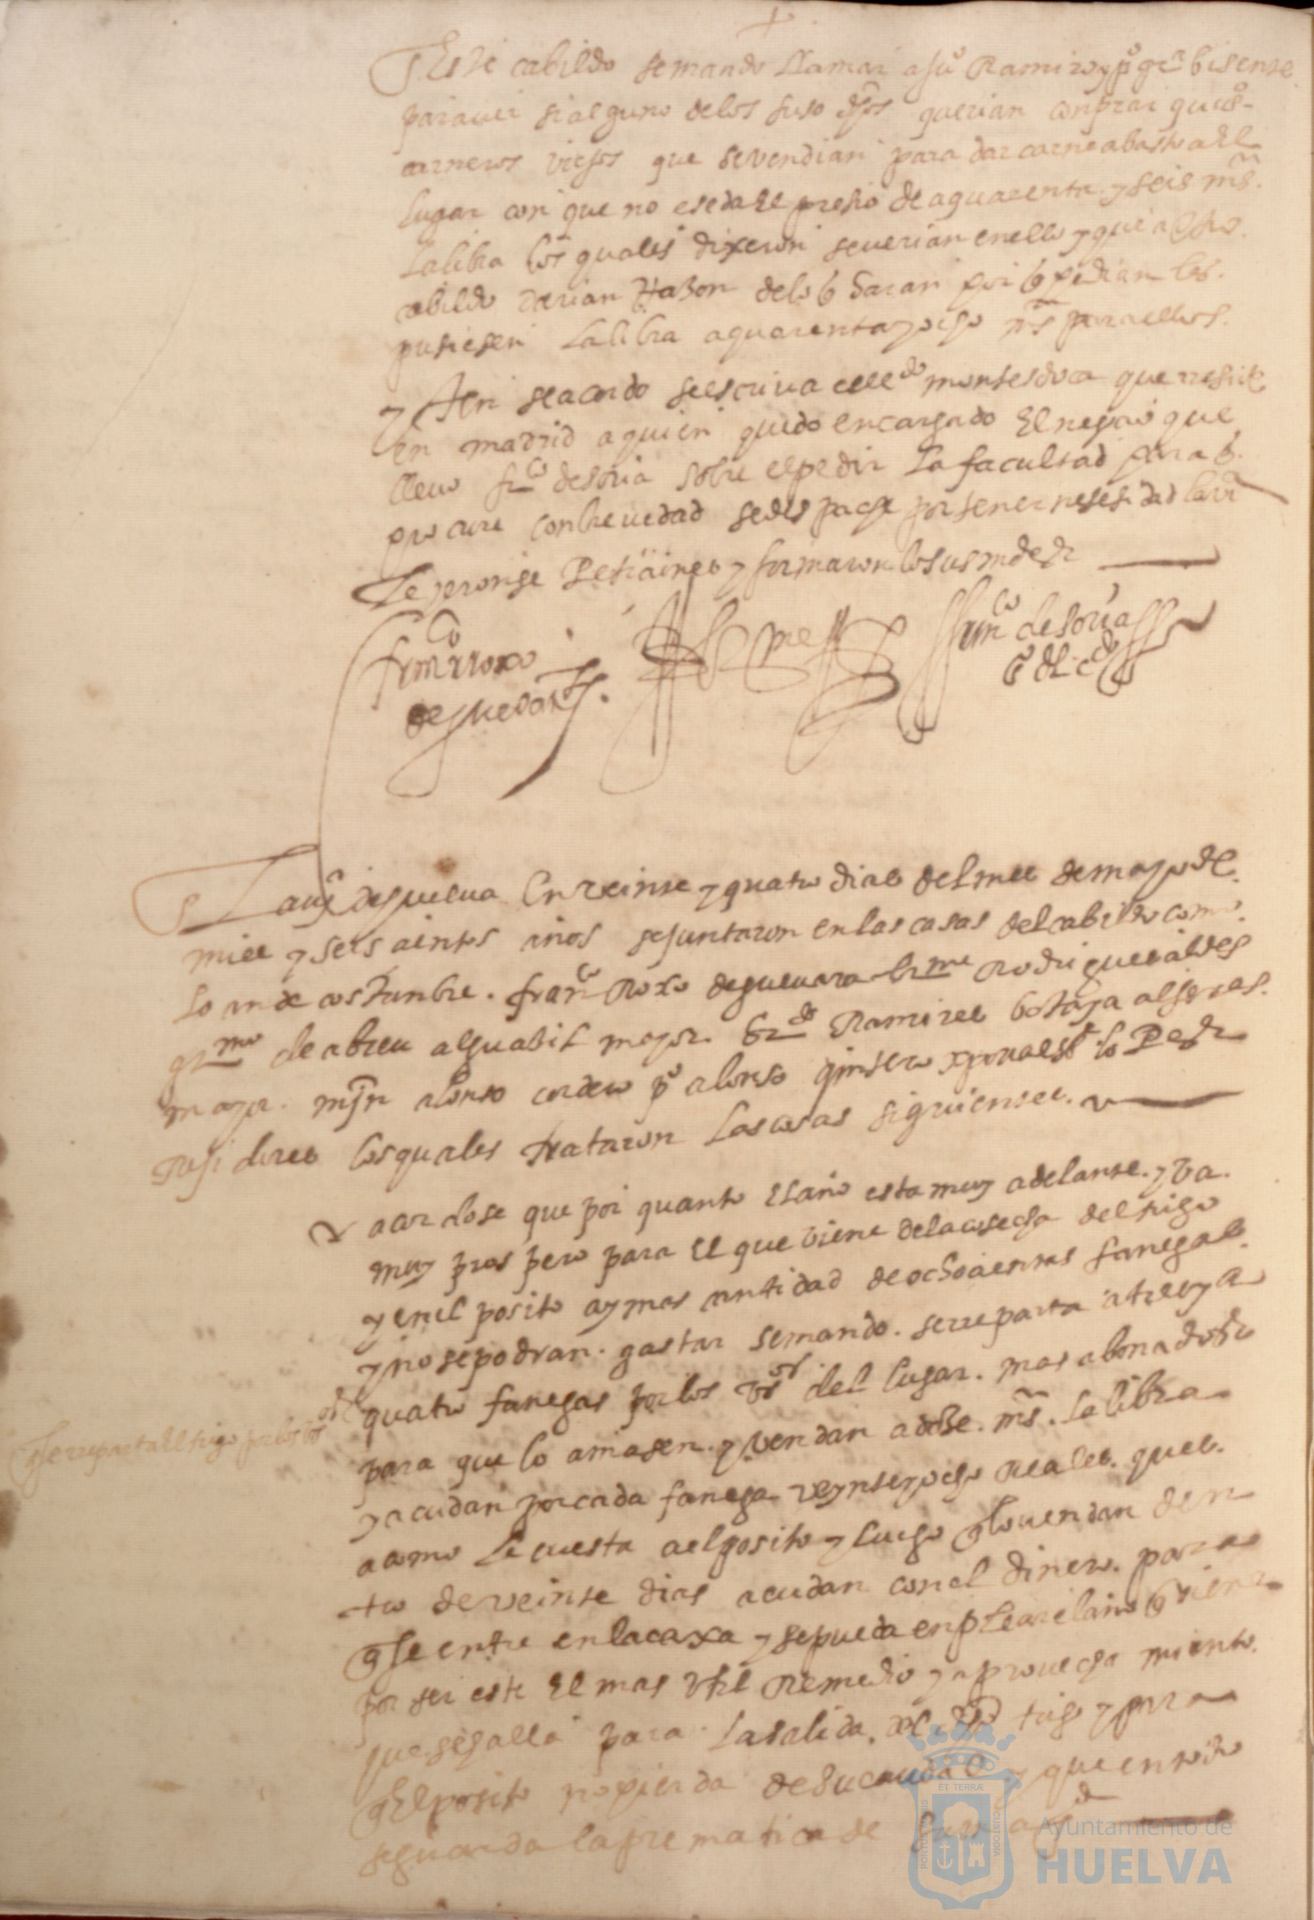 +
Este cabildo se mando llamar a juº Ramirez y pº gra bisente
para ver si alguno de los suso dhos querian conprar quios
carneros viejos que se vendian para dar carne abasto a el
lugar con que no eseda el presio de a quarenta y seis ms
la libra los quales dixeron se verian en ello y que al dho
cabildo darian Razon de lo q daran por q pedian les
pusiesen la libra a quarenta y ocho ms para ellos
y Ansi se acordo se escriva a el ldo montesdoca que reside
en madrid a quien quedo encargado El negosio que
llevo franco de soria sobre el pedir la facultad para q
procure con brevedad se despache por tener nesesidad la vª
Leyeronse Petisiones y firmaron los us mds
franco rroxo
de guevara
franco de soria
sº del cdo
La vª de guelva En veinte y quatro dias del mes de mayo de
mill y seis cientos años se juntaron en las casas del cabildo como
lo an de costunbre. franco Roxo de guevara Rodrigues valdes
grmo de abreu alguazil mayor. Ramires botaja alferes
mayor. mjn alonso cordero pº alonso quintero
Rejidores los quales trataron las cosas siguientes
acordose que por quanto El año esta muy adelante. y va
muy prospero para El que viene de la cosecha del trigo
y en el posito ay mas cantidad de ochocientas fanegas
y no se podran gastar se mando. se rreparta a tres y a
quatro fanegas por los vos del lugar. mas abonados
para que lo amasen. y vendan a doze. ms. la libra
y acudan por cada fanega veynte y ocho Reales. ques
a como le cuesta a el posito y luego q lo vendan den
tro de veinte dias acudan con el dinero. para
q se entre en la caxa y se pueda enplear el año q viene
por ser este El mas util Remedio y aprovechamiento
que se halla para la salida del dho trigo y para
q El posito no pierda de su caudal y que en todo
se guarda la prematica de su magd
q se rreparta El trigo por los vos
Ayuntamiento de
HUELVA
PORTUS MARIS
ET TERRAE
CUSTODIA